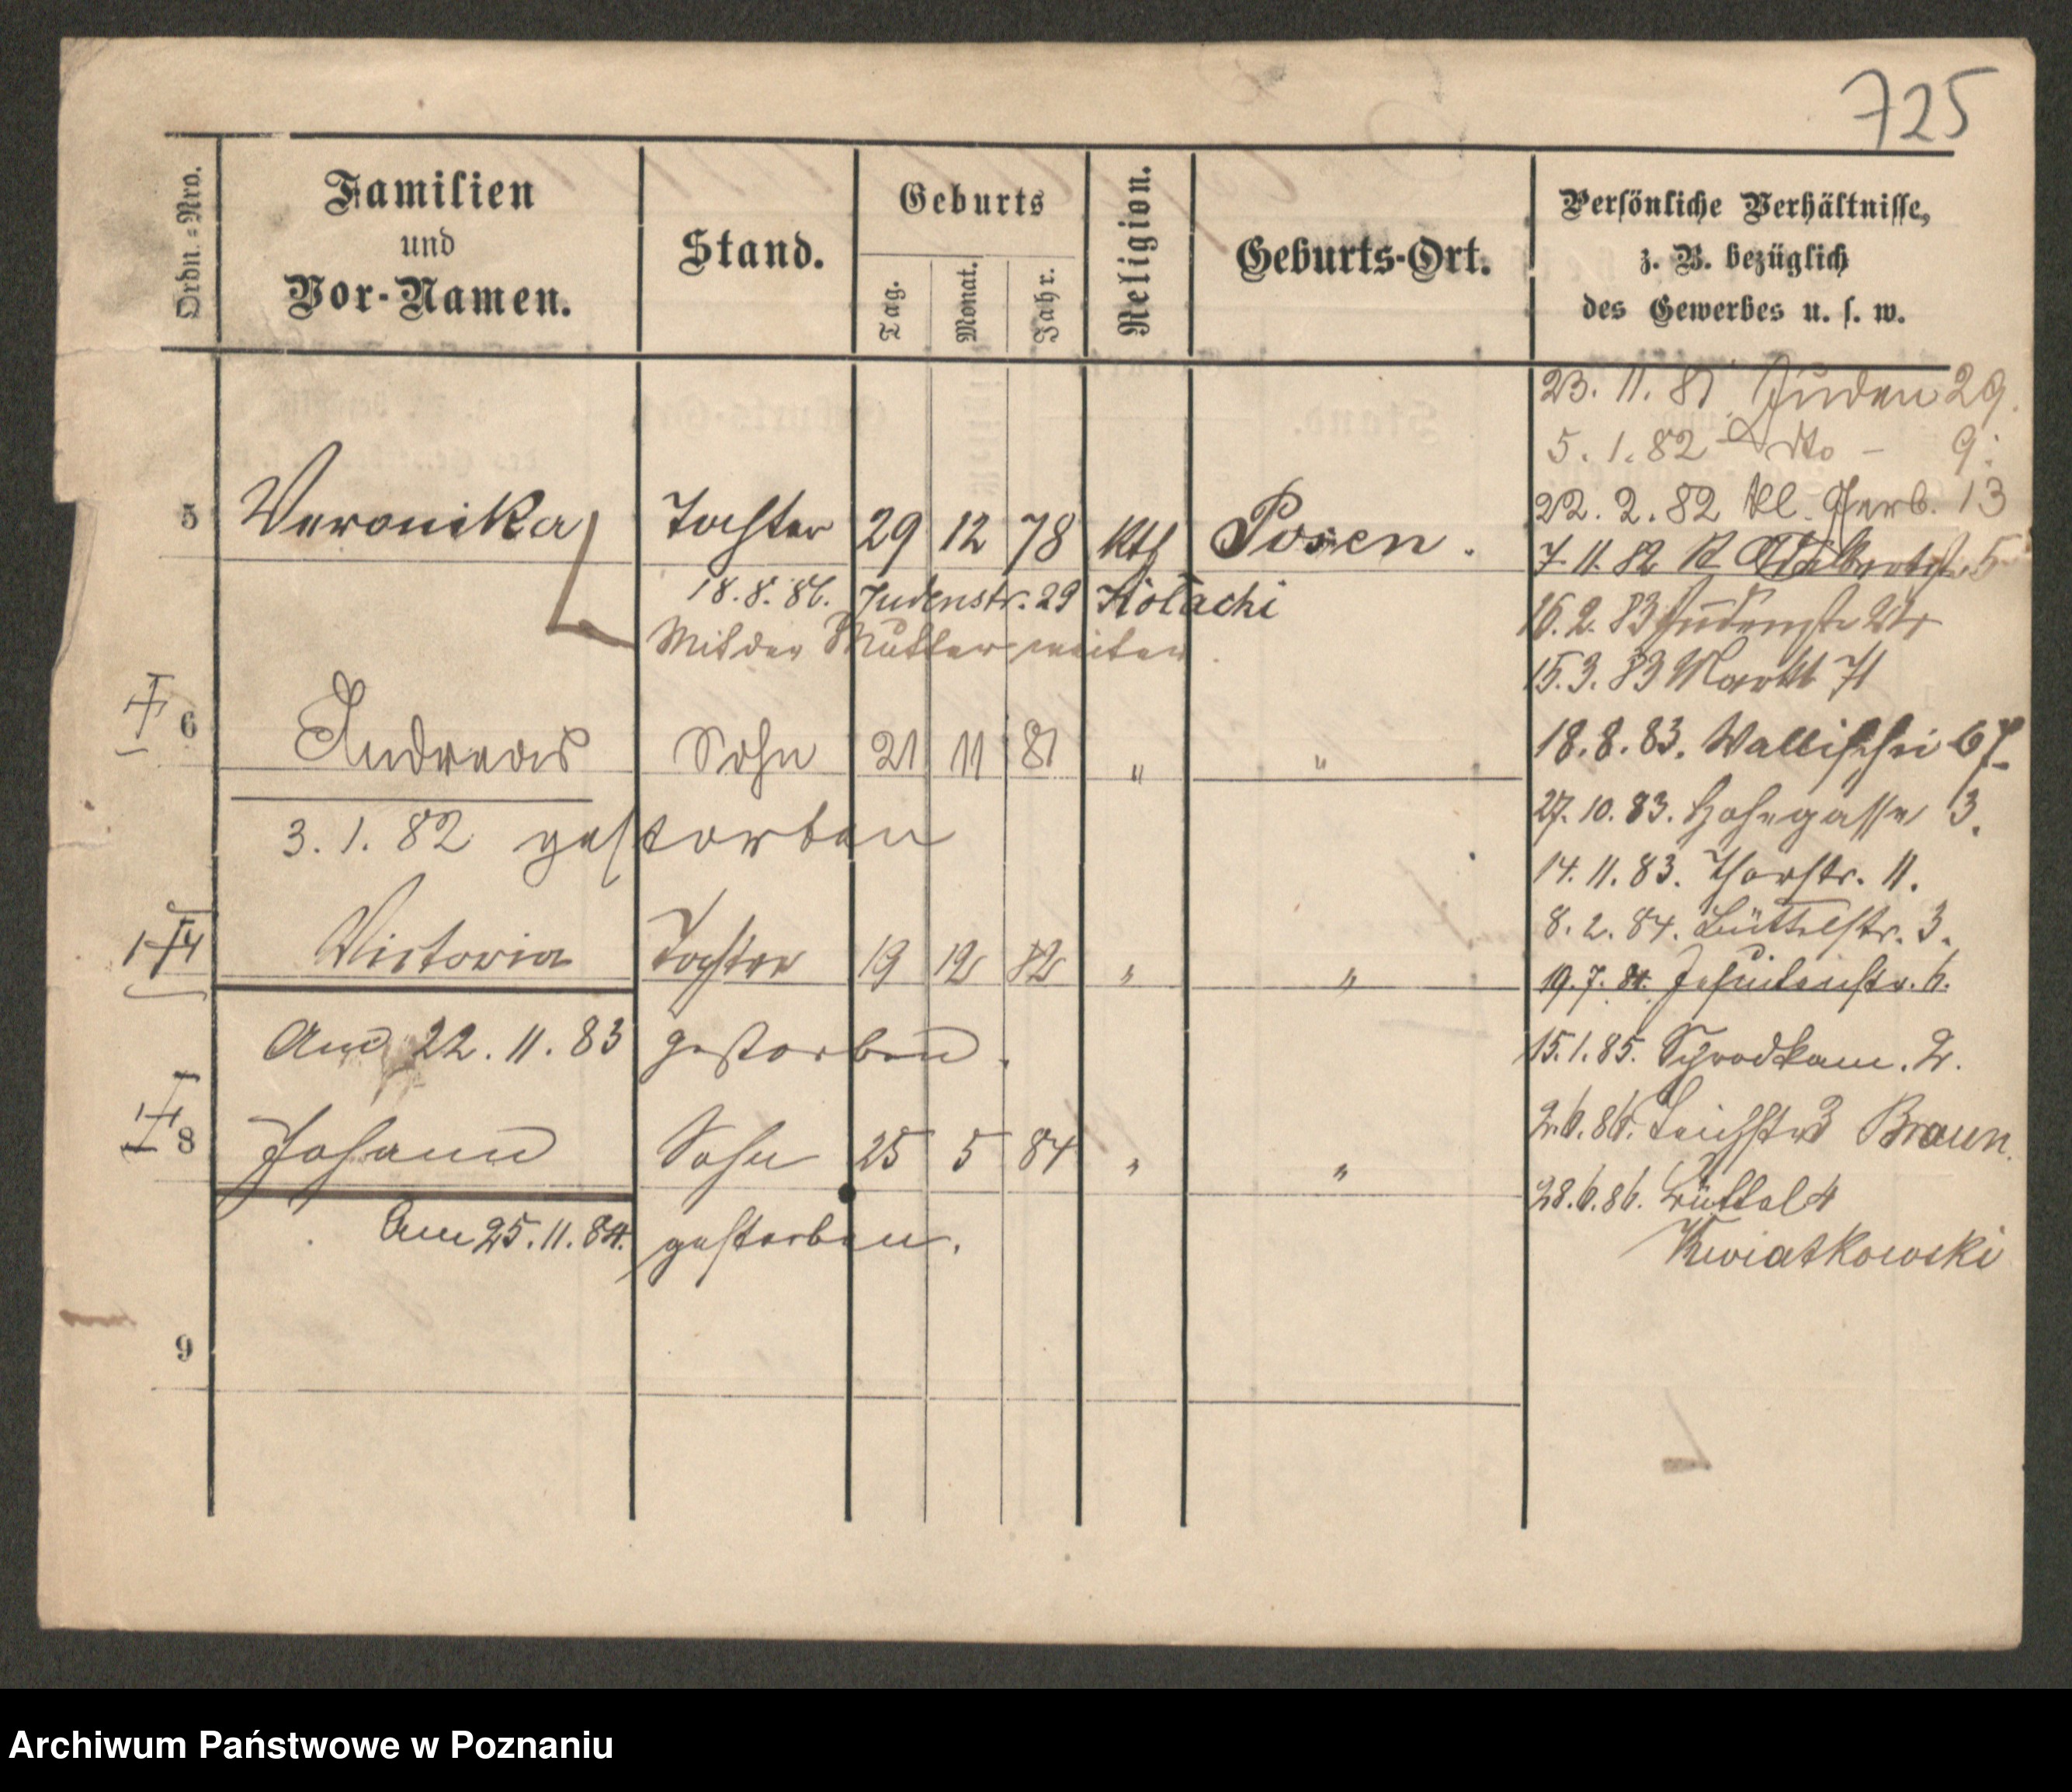 725
Ordn.=Nro.
Familien
und
Vor-Namen.
Stand.
Geburts
Tag.
Monat.
Jahr.
Religion.
Geburts-Ort.
Persönliche Verhältnisse,
z. B. bezüglich
des Gewerbes u. s. w.
23. 11. 81 Juden 29.
5. 1. 82 - dto - 9.
22. 2. 82 kl. Gerb. 13
5 Veronika Tochter 29 12 78 kth Posen.
7. 11. 82 5
18. 8. 86. Judenstr. 29 Kolacki
16. 2. 83 Judenstr
Mit der Mutter weiter
15. 3. 83 Markt 71
6 Andreas Sohn 21 11 81 " "
18. 8. 83. Wallischei 67
3. 1. 82 gestorben
27. 10. 83. Hohegasse 3.
14. 11. 83. Thorstr. 11.
8. 2. 84. Büttelstr. 3.
Victoria Tochter 19 12 82 " "
19. 7. 84. Jesuitenstr. 6.
Am 22. 11. 83 gestorben.
15. 1. 85. Schrodkam. 2.
2. 6. 86. Teichstr 3 Braun.
8 Johann Sohn 25 5 84 " "
28. 6. 86. Büttel 4
Kwiatkowski
Am 25. 11. 84. gestorben.
9
Archiwum Państwowe w Poznaniu